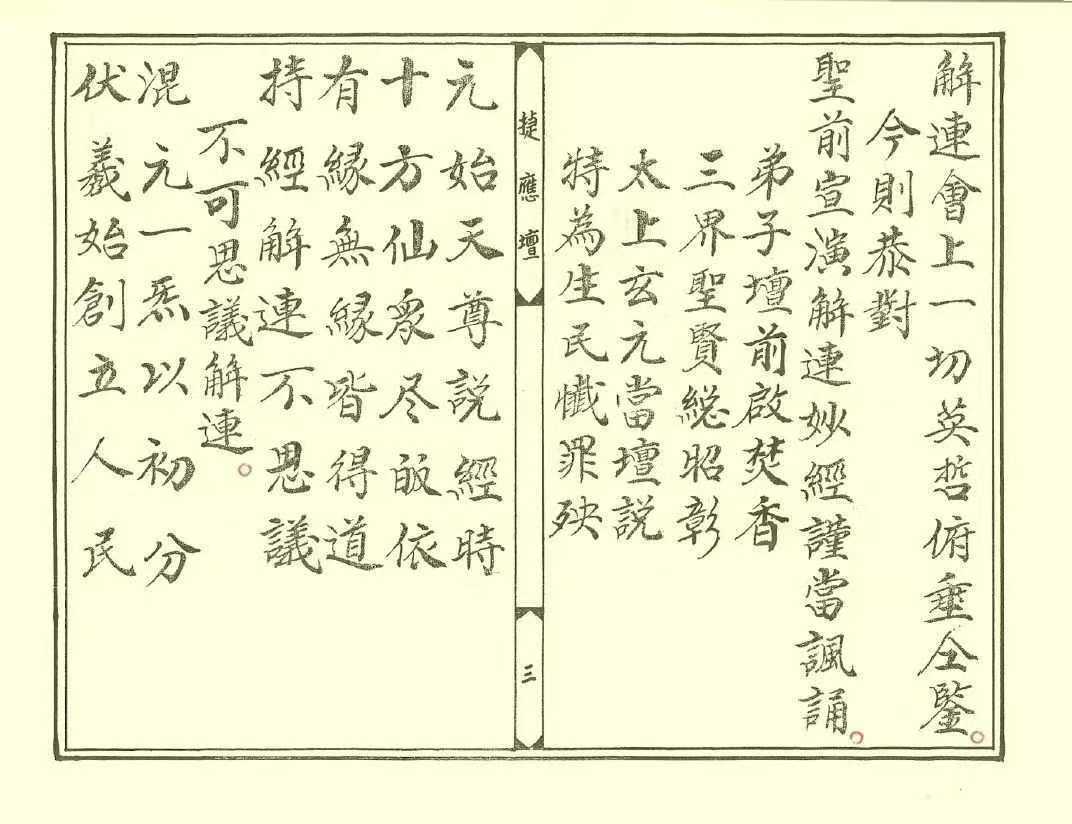 解連會上一切英哲俯垂仝鑒。
今則恭對
聖前宣演解連妙經謹當諷誦。
弟子壇前啟焚香
三界聖賢総昭彰
太上玄元當壇説
特為生民懺罪殃
捷應壇
三
元始天尊説經時
十方仙衆尽皈依
有緣無緣皆得道
持經解連不思議
不可思議解連。
混元一炁以初分
伏羲始創立人民